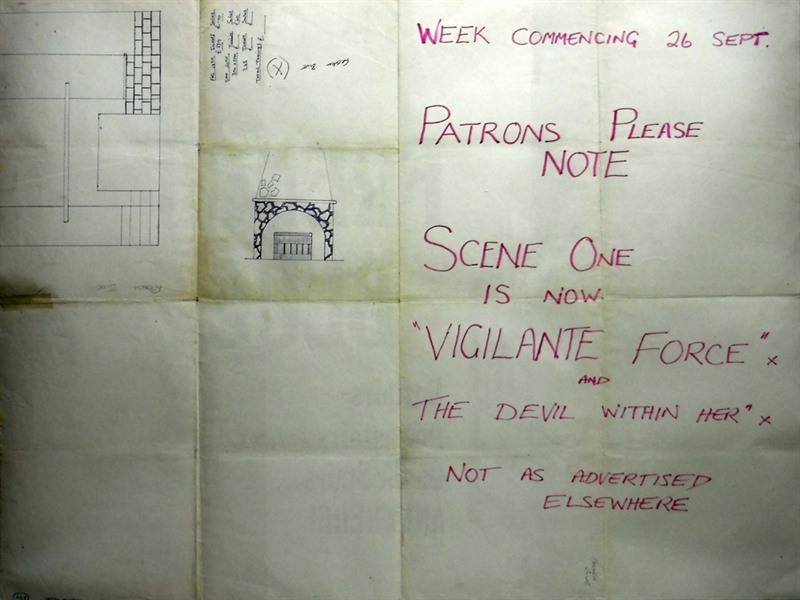 WEEK COMMENCING 26 SEPT.
PATRONS PLEASE
NOTE
SCENE ONE
IS NOW
"VIGILANTE FORCE" x
AND
THE DEVIL WITHIN HER" x
NOT AS ADVERTISED
ELSEWHERE